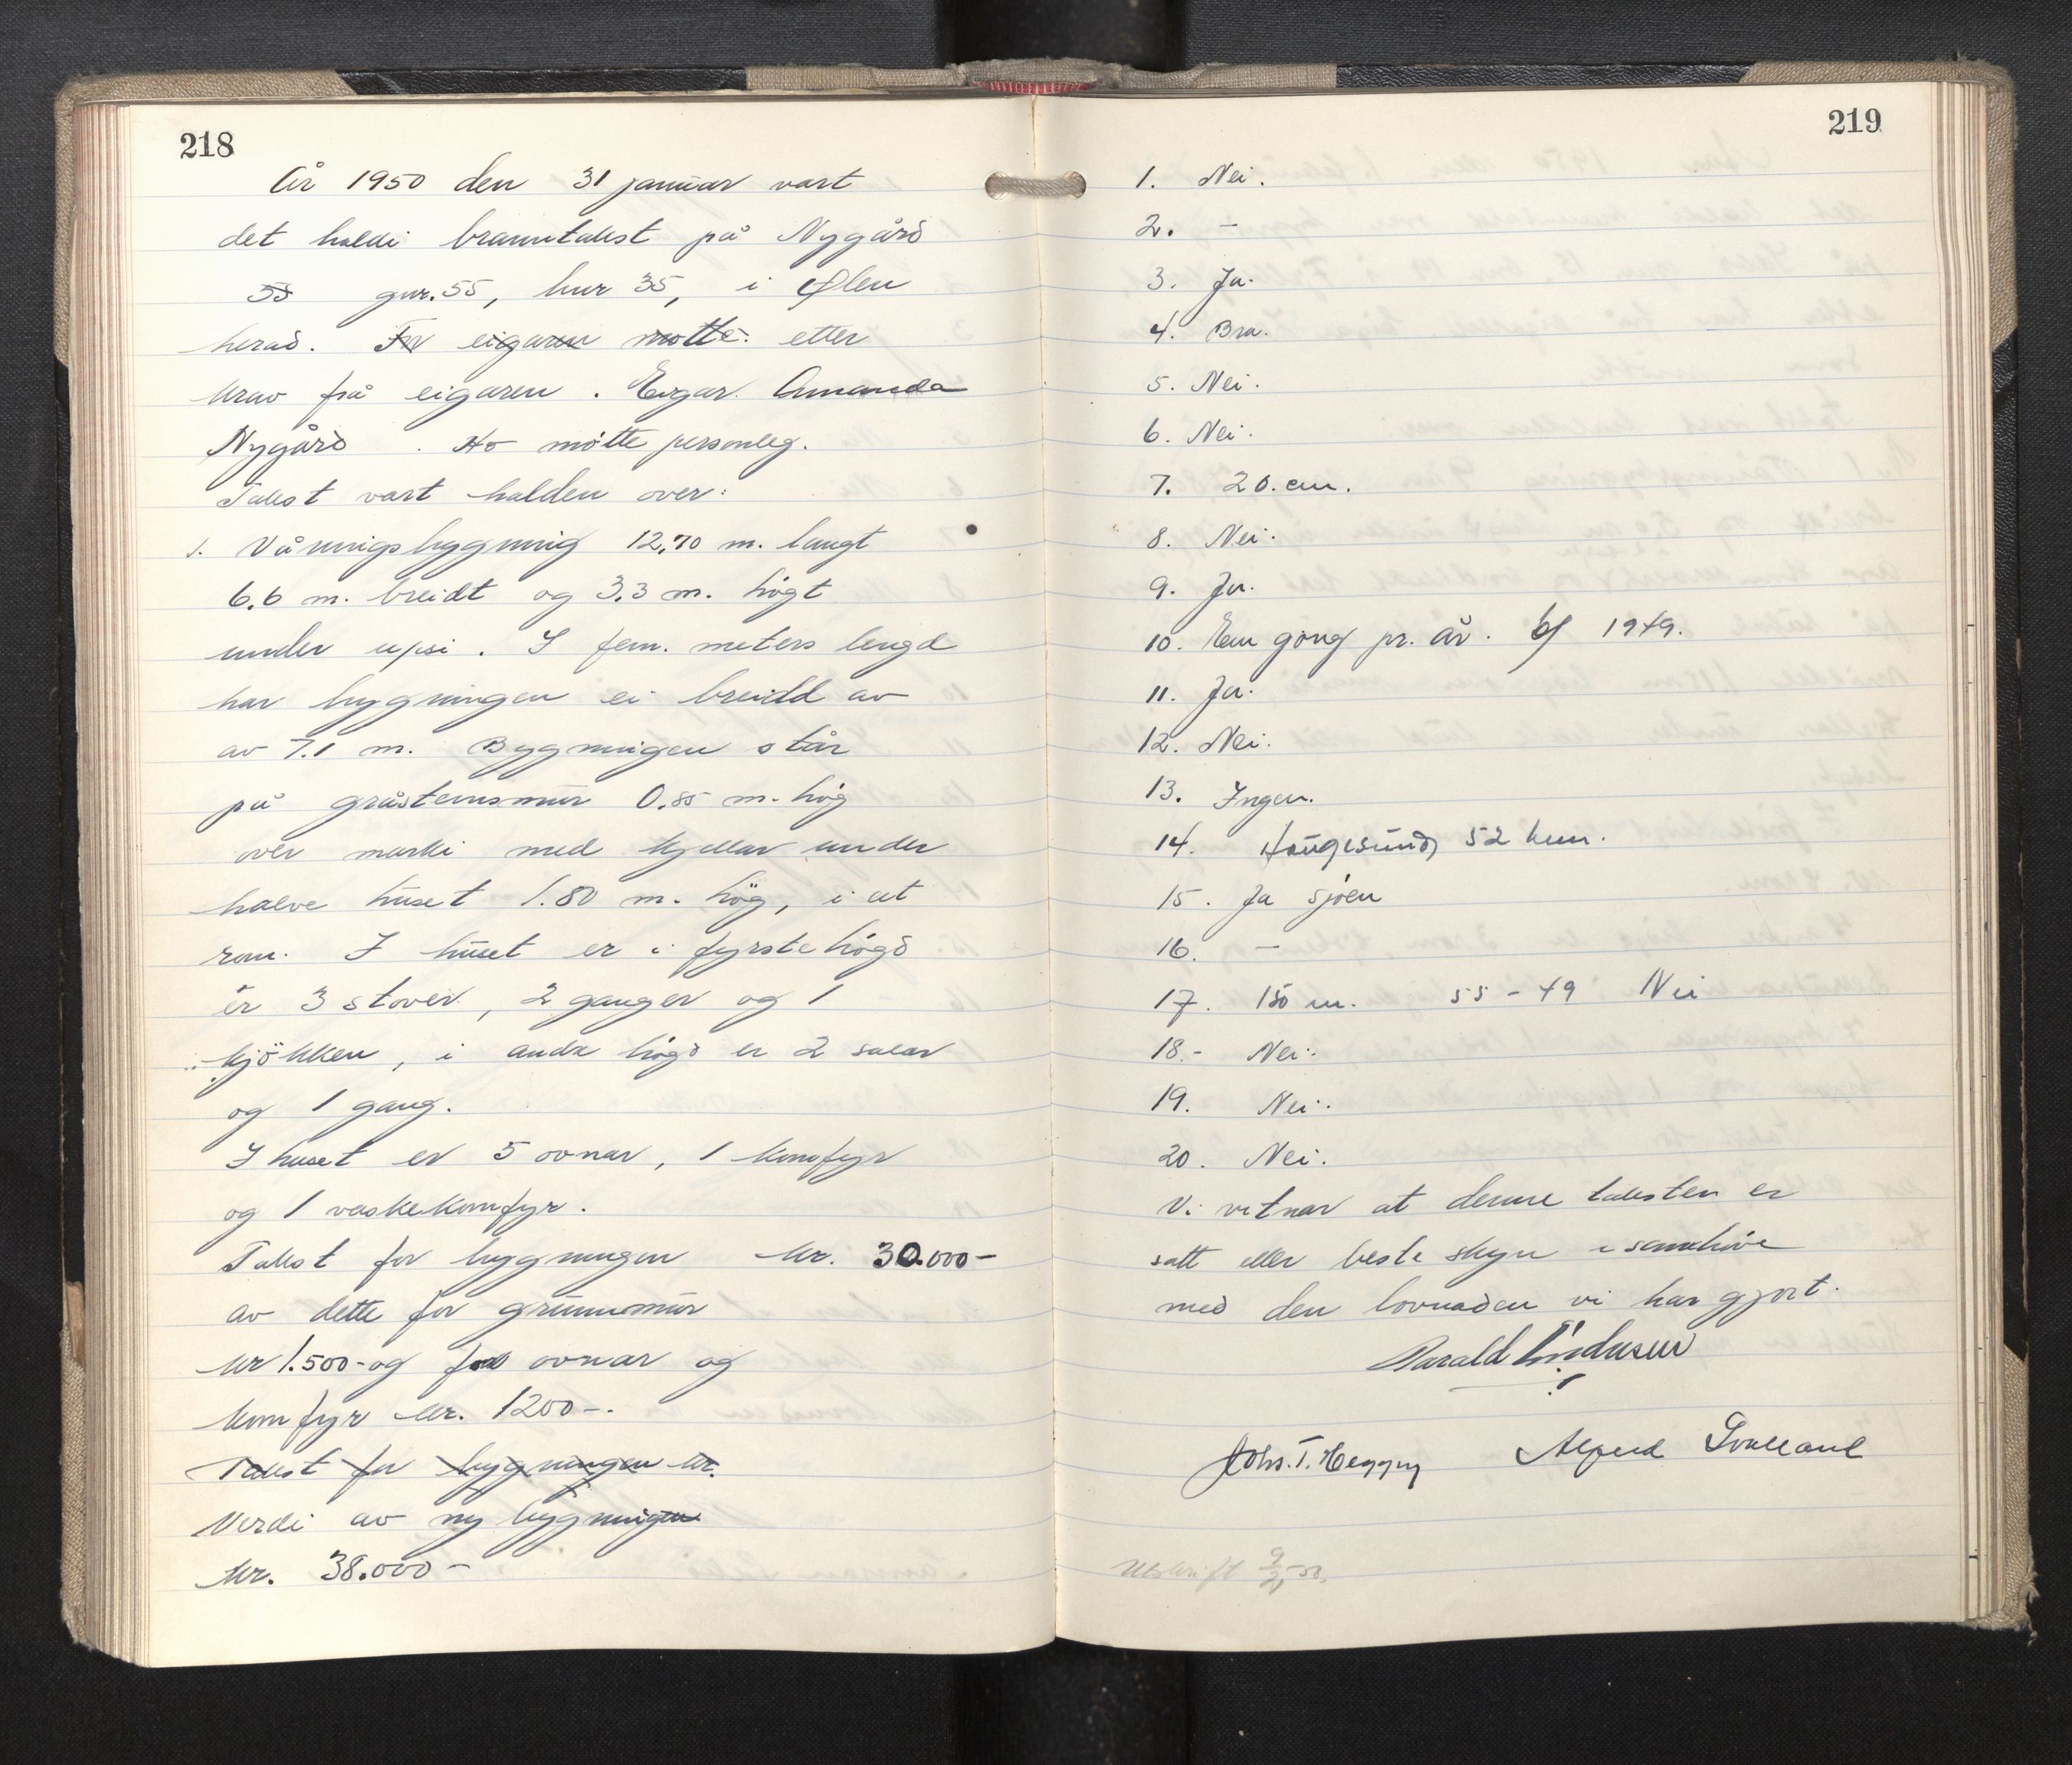 218
År 1950 den 31 januar vart
det haldi branntakst på Nygård
55 gnr. 55, bnr 35, i Ølen
herad. For eigaren møtte. etter
krav frå eigaren. Eigar. Amanda
Nygård. Ho møtte personleg.
Takst vart halden over:
1. Våningsbyggning 12,70 m. langt
6.6 m. breidt og 3.3 m. högt
under upsi. I fem. meters lengd
har byggningen ei breidd av
av 7.1 m. Byggningen står
på gråsteinsmur 0.85 m. hög
over marki med kjellar under
halve huset 1.80 m. hög, i eit
rom. I huset er i fyrste högd
er 3 stover, 2 ganger og 1
kjökken, i andre högd er 2 salar
og 1 gang.
I huset er 5 ovnar, 1 komfyr
og 1 vaskekomfyr.
Takst for byggningen kr. 30.000-
av dette for grunnmur
kr 1.500- og for ovnar og
komfyr kr. 1200-.
Takst for byggningen kr.
Verdi av ny byggningen
kr. 38.000-
219
1. Nei.
2. -
3. Ja.
4. Bra.
5. Nei.
6. Nei.
7. 20. cm.
8. Nei.
9. Ja.
10. Ein gong pr. år. 1949.
11. Ja.
12. Nei.
13. Ingen.
14. Haugesund, 52 km.
15. Ja sjøen
16. -
17. 150 m. 55-49 Nei
18.- Nei.
19. Nei.
20. Nei.
Vi vitnar at denne taksten er
satt etter beste skyn i samhöve
med den lovnaden vi har gjort.
Harald
Johs. T. Heggøy Alfred Svalland
Utskrift 9/2-50.